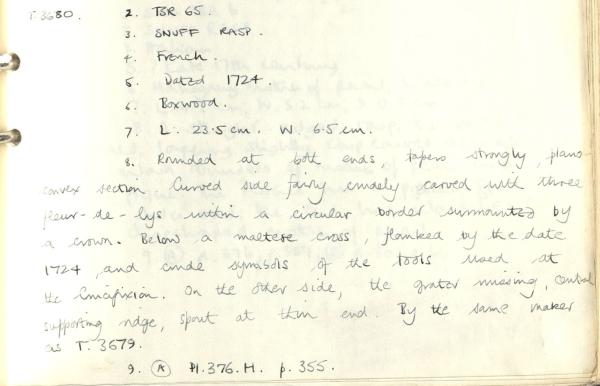 T.3680. 2. TSR 65.
3. SNUFF RASP.
4. French.
5. Dated 1724.
6. Boxwood.
7. L. 23.5cm. W. 6.5cm.
8. Rounded at both ends, tapers strongly, plano-
convex section. Curved side fairly crudely carved with three
fleur-de-lys within a circular border surmounted by
a crown. Below a maltese cross, flanked by the date
1724, and crude symbols of the tools used at
the Crucifixion. On the other side, the grater missing, central
supporting ridge, spout at thin end. By the same maker
as T.3679.
9. (A) Pl.376.H. p.355.